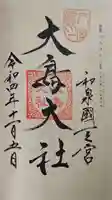 和泉國一之宮
大鳥大社
令和四年十月五日